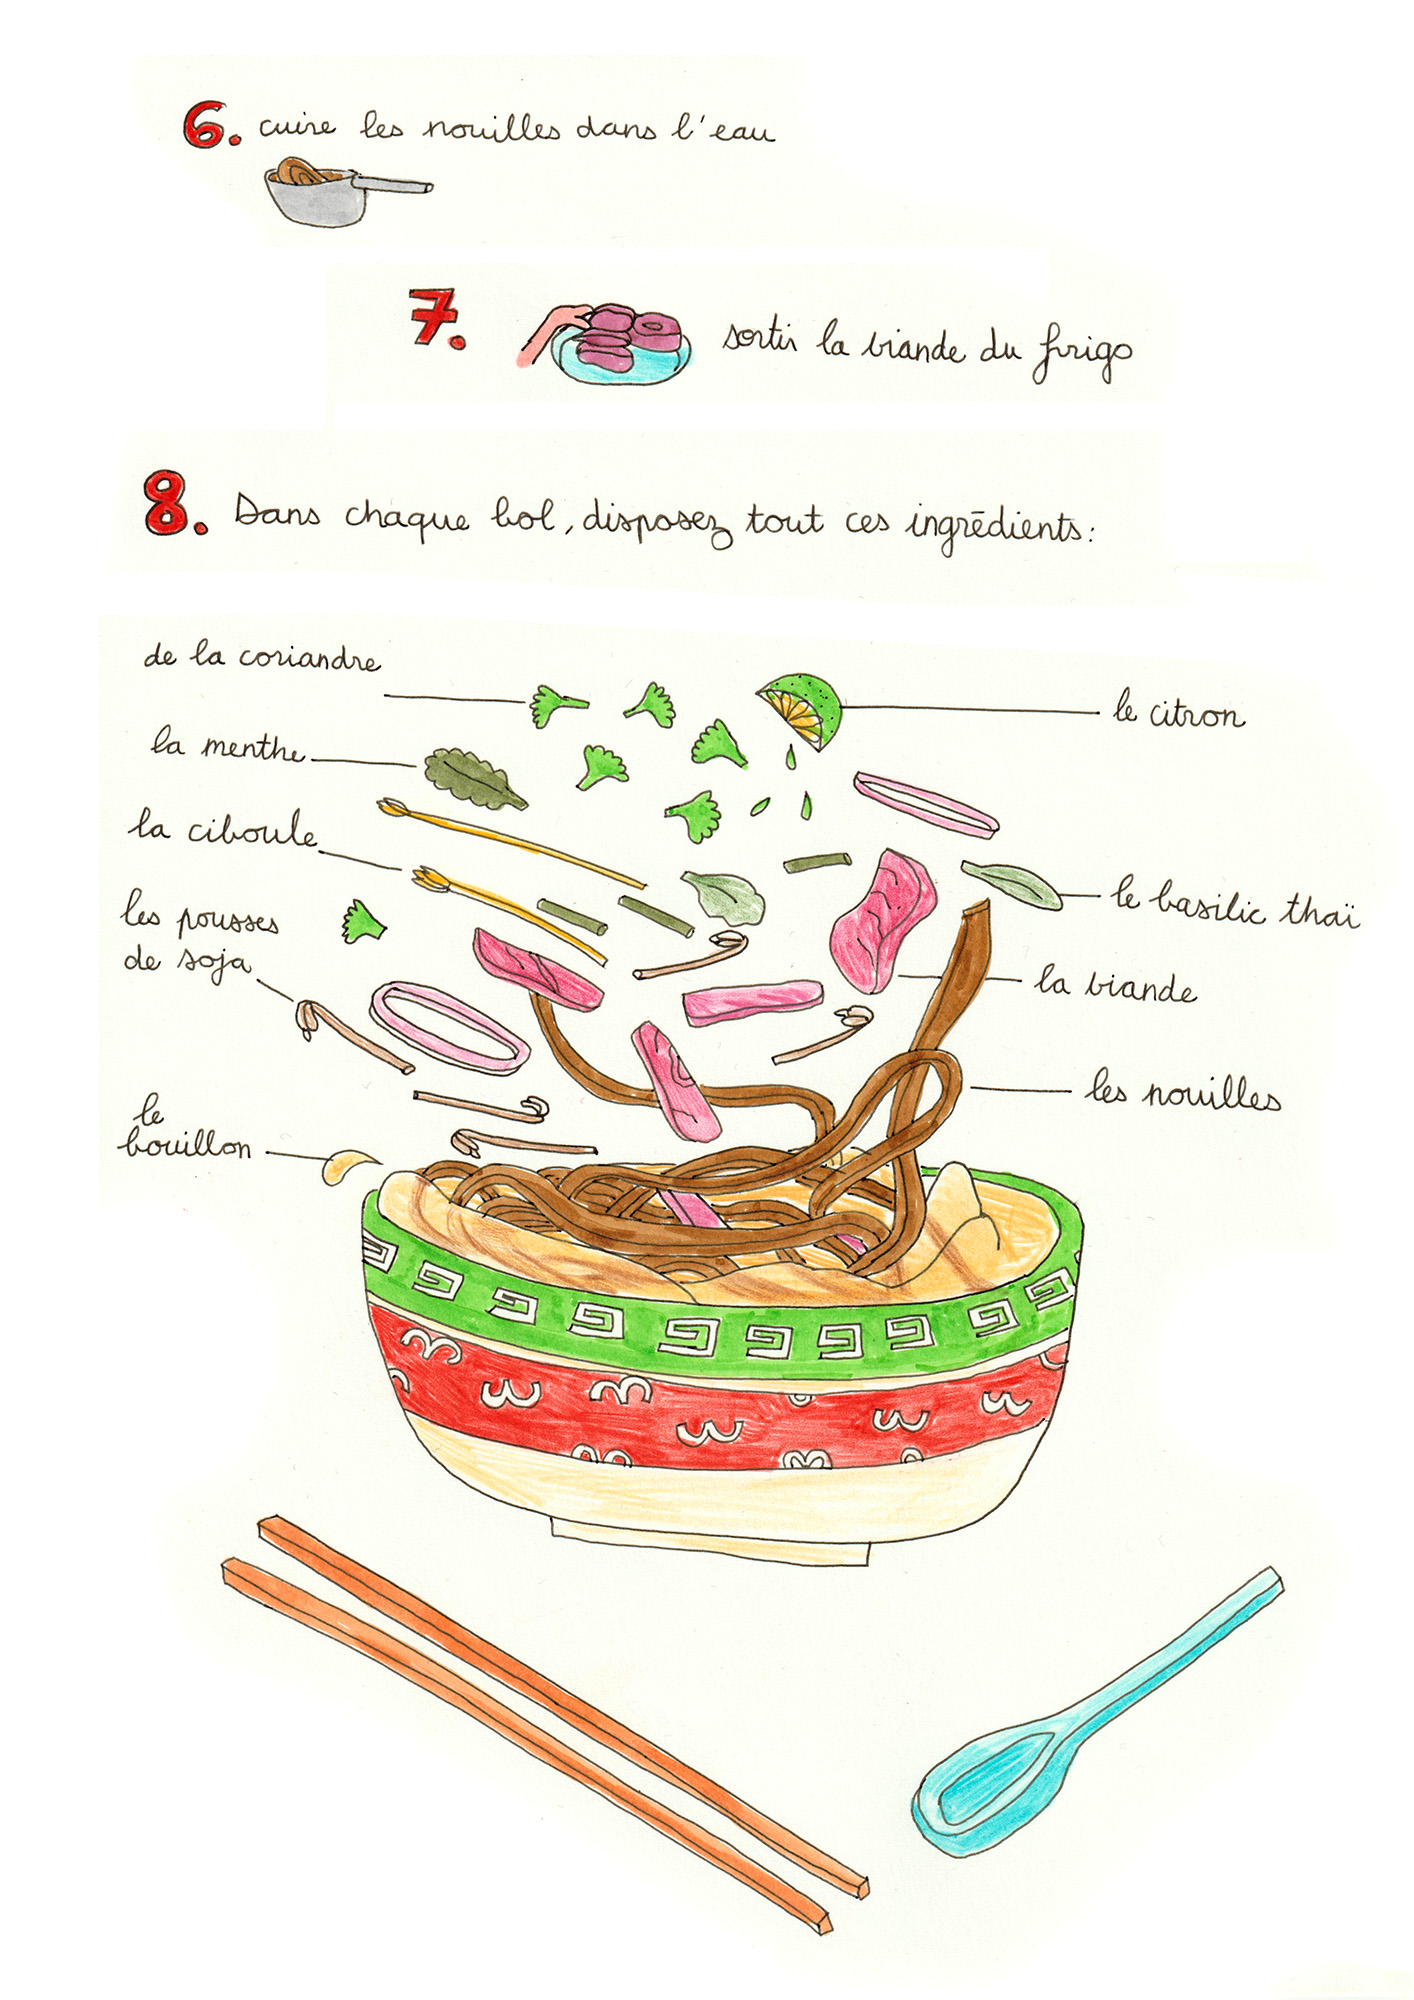 6. cuire les nouilles dans l'eau
7. sortir la viande du frigo
8. Dans chaque bol, disposez tout ces ingrédients:
de la coriandre
le citron
la menthe
la ciboule
le basilic thaï
les pousses
de soja
la viande
les nouilles
le
bouillon